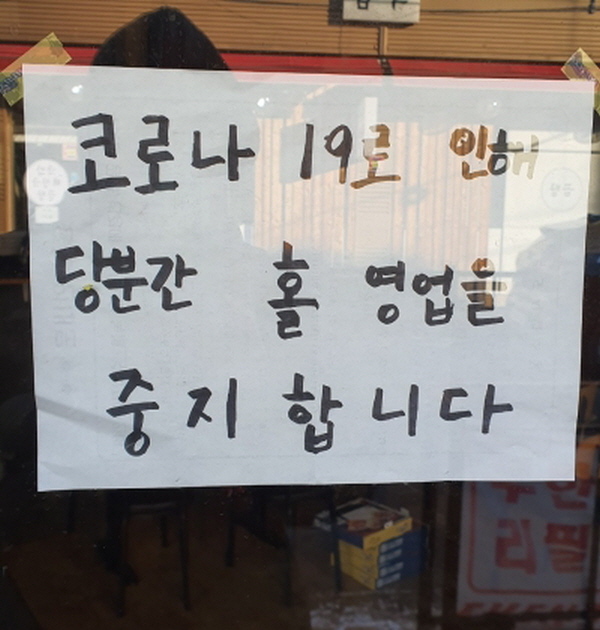 코로나 19로 인해
당분간 홀 영업을
중지 합니다